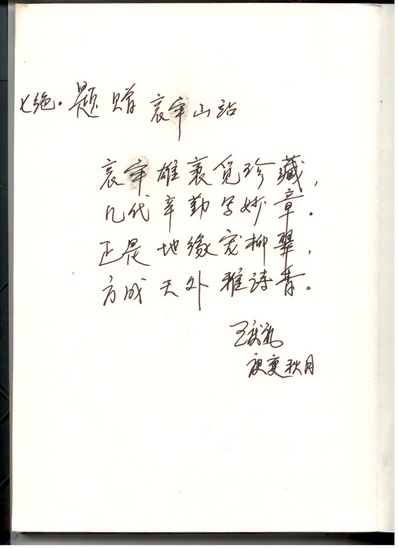 七绝·题赠哀牢山站
哀牢雄裹觅珍藏,
几代辛勤写妙章。
正是地缘宠柳翠,
方成天外雅诗香。
王
庚寅秋月